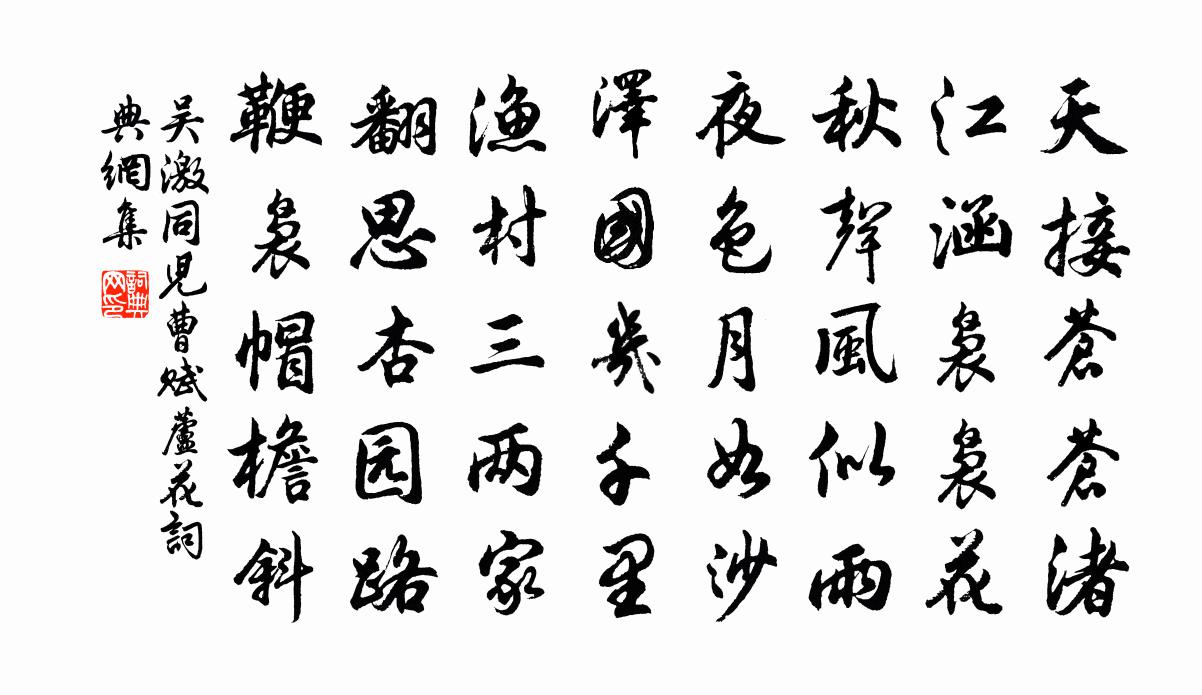 天接蒼蒼渚
江涵裊裊花
秋聲風似雨
夜色月如沙
澤國幾千里
渔村三两家
翻思杏园路
鞭裊帽檐斜
吴激同兒曹賦蘆花詞
典網集
詞典网印